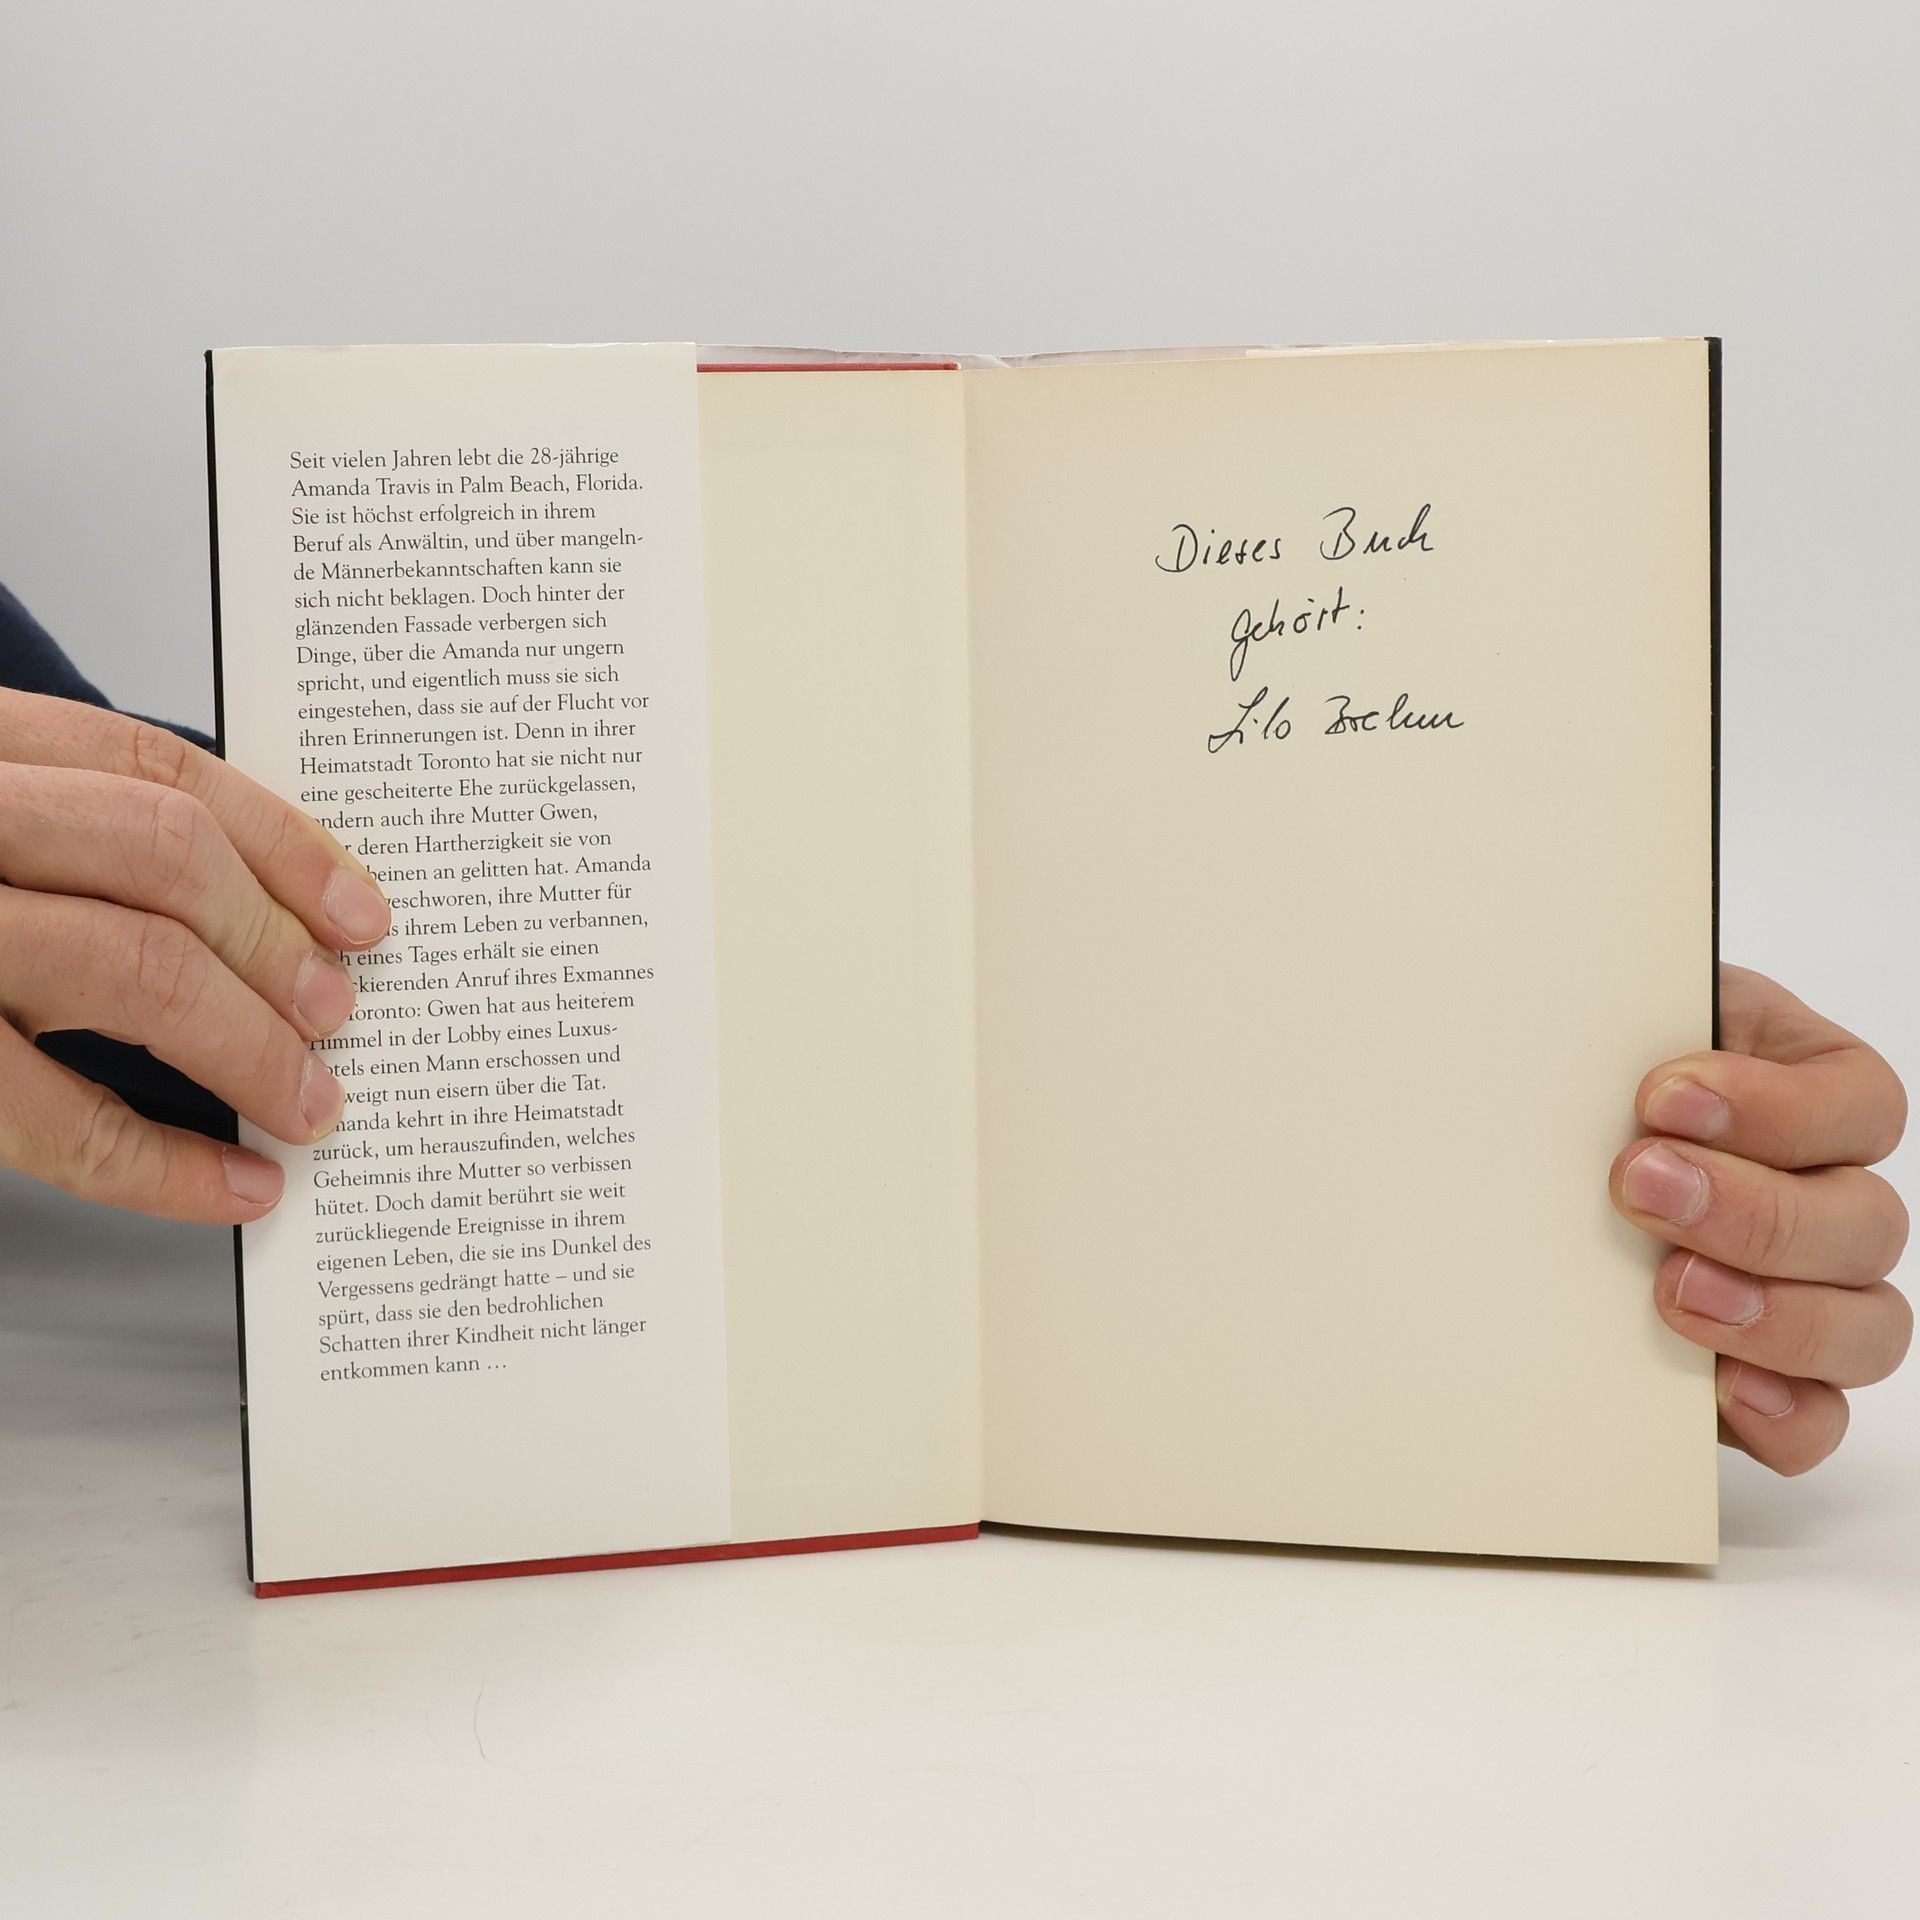 Seit vielen Jahren lebt die 28-jährige
Amanda Travis in Palm Beach, Florida.
Sie ist höchst erfolgreich in ihrem
Beruf als Anwältin, und über mangeln-
de Männerbekanntschaften kann sie
sich nicht beklagen. Doch hinter der
glänzenden Fassade verbergen sich
Dinge, über die Amanda nur ungern
spricht, und eigentlich muss sie sich
eingestehen, dass sie auf der Flucht vor
ihren Erinnerungen ist. Denn in ihrer
Heimatstadt Toronto hat sie nicht nur
eine gescheiterte Ehe zurückgelassen,
ndern auch ihre Mutter Gwen,
r deren Hartherzigkeit sie von
beinen an gelitten hat. Amanda
geschworen, ihre Mutter für
s ihrem Leben zu verbannen,
h eines Tages erhält sie einen
ckierenden Anruf ihres Exmannes
Toronto: Gwen hat aus heiterem
Himmel in der Lobby eines Luxus-
otels einen Mann erschossen und
weigt nun eisern über die Tat.
manda kehrt in ihre Heimatstadt
zurück, um herauszufinden, welches
Geheimnis ihre Mutter so verbissen
hütet. Doch damit berührt sie weit
zurückliegende Ereignisse in ihrem
eigenen Leben, die sie ins Dunkel des
Vergessens gedrängt hatte – und sie
spürt, dass sie den bedrohlichen
Schatten ihrer Kindheit nicht länger
entkommen kann …
Dieses Buch
gehört:
Lilo Brehm